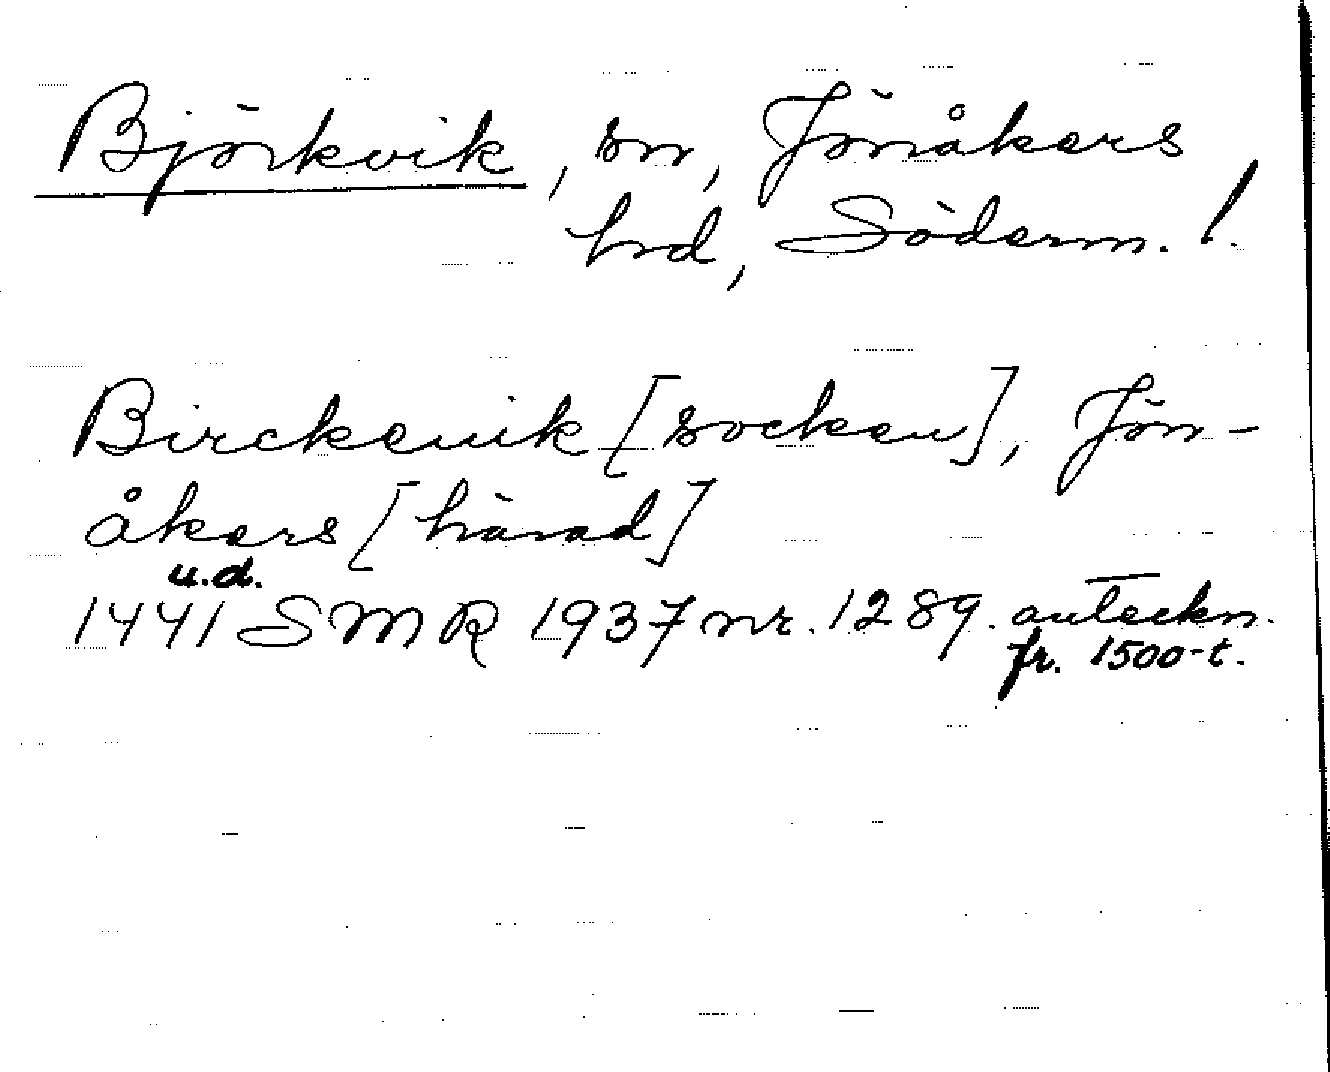 Björkvik, sn, Jönåkers
hd, Söderm. l.
Birckeuik [socken], Jön-
åkers [härad]
u.d.
1441 SMR 1937 nr. 1289. anteckn.
fr. 1500-t.